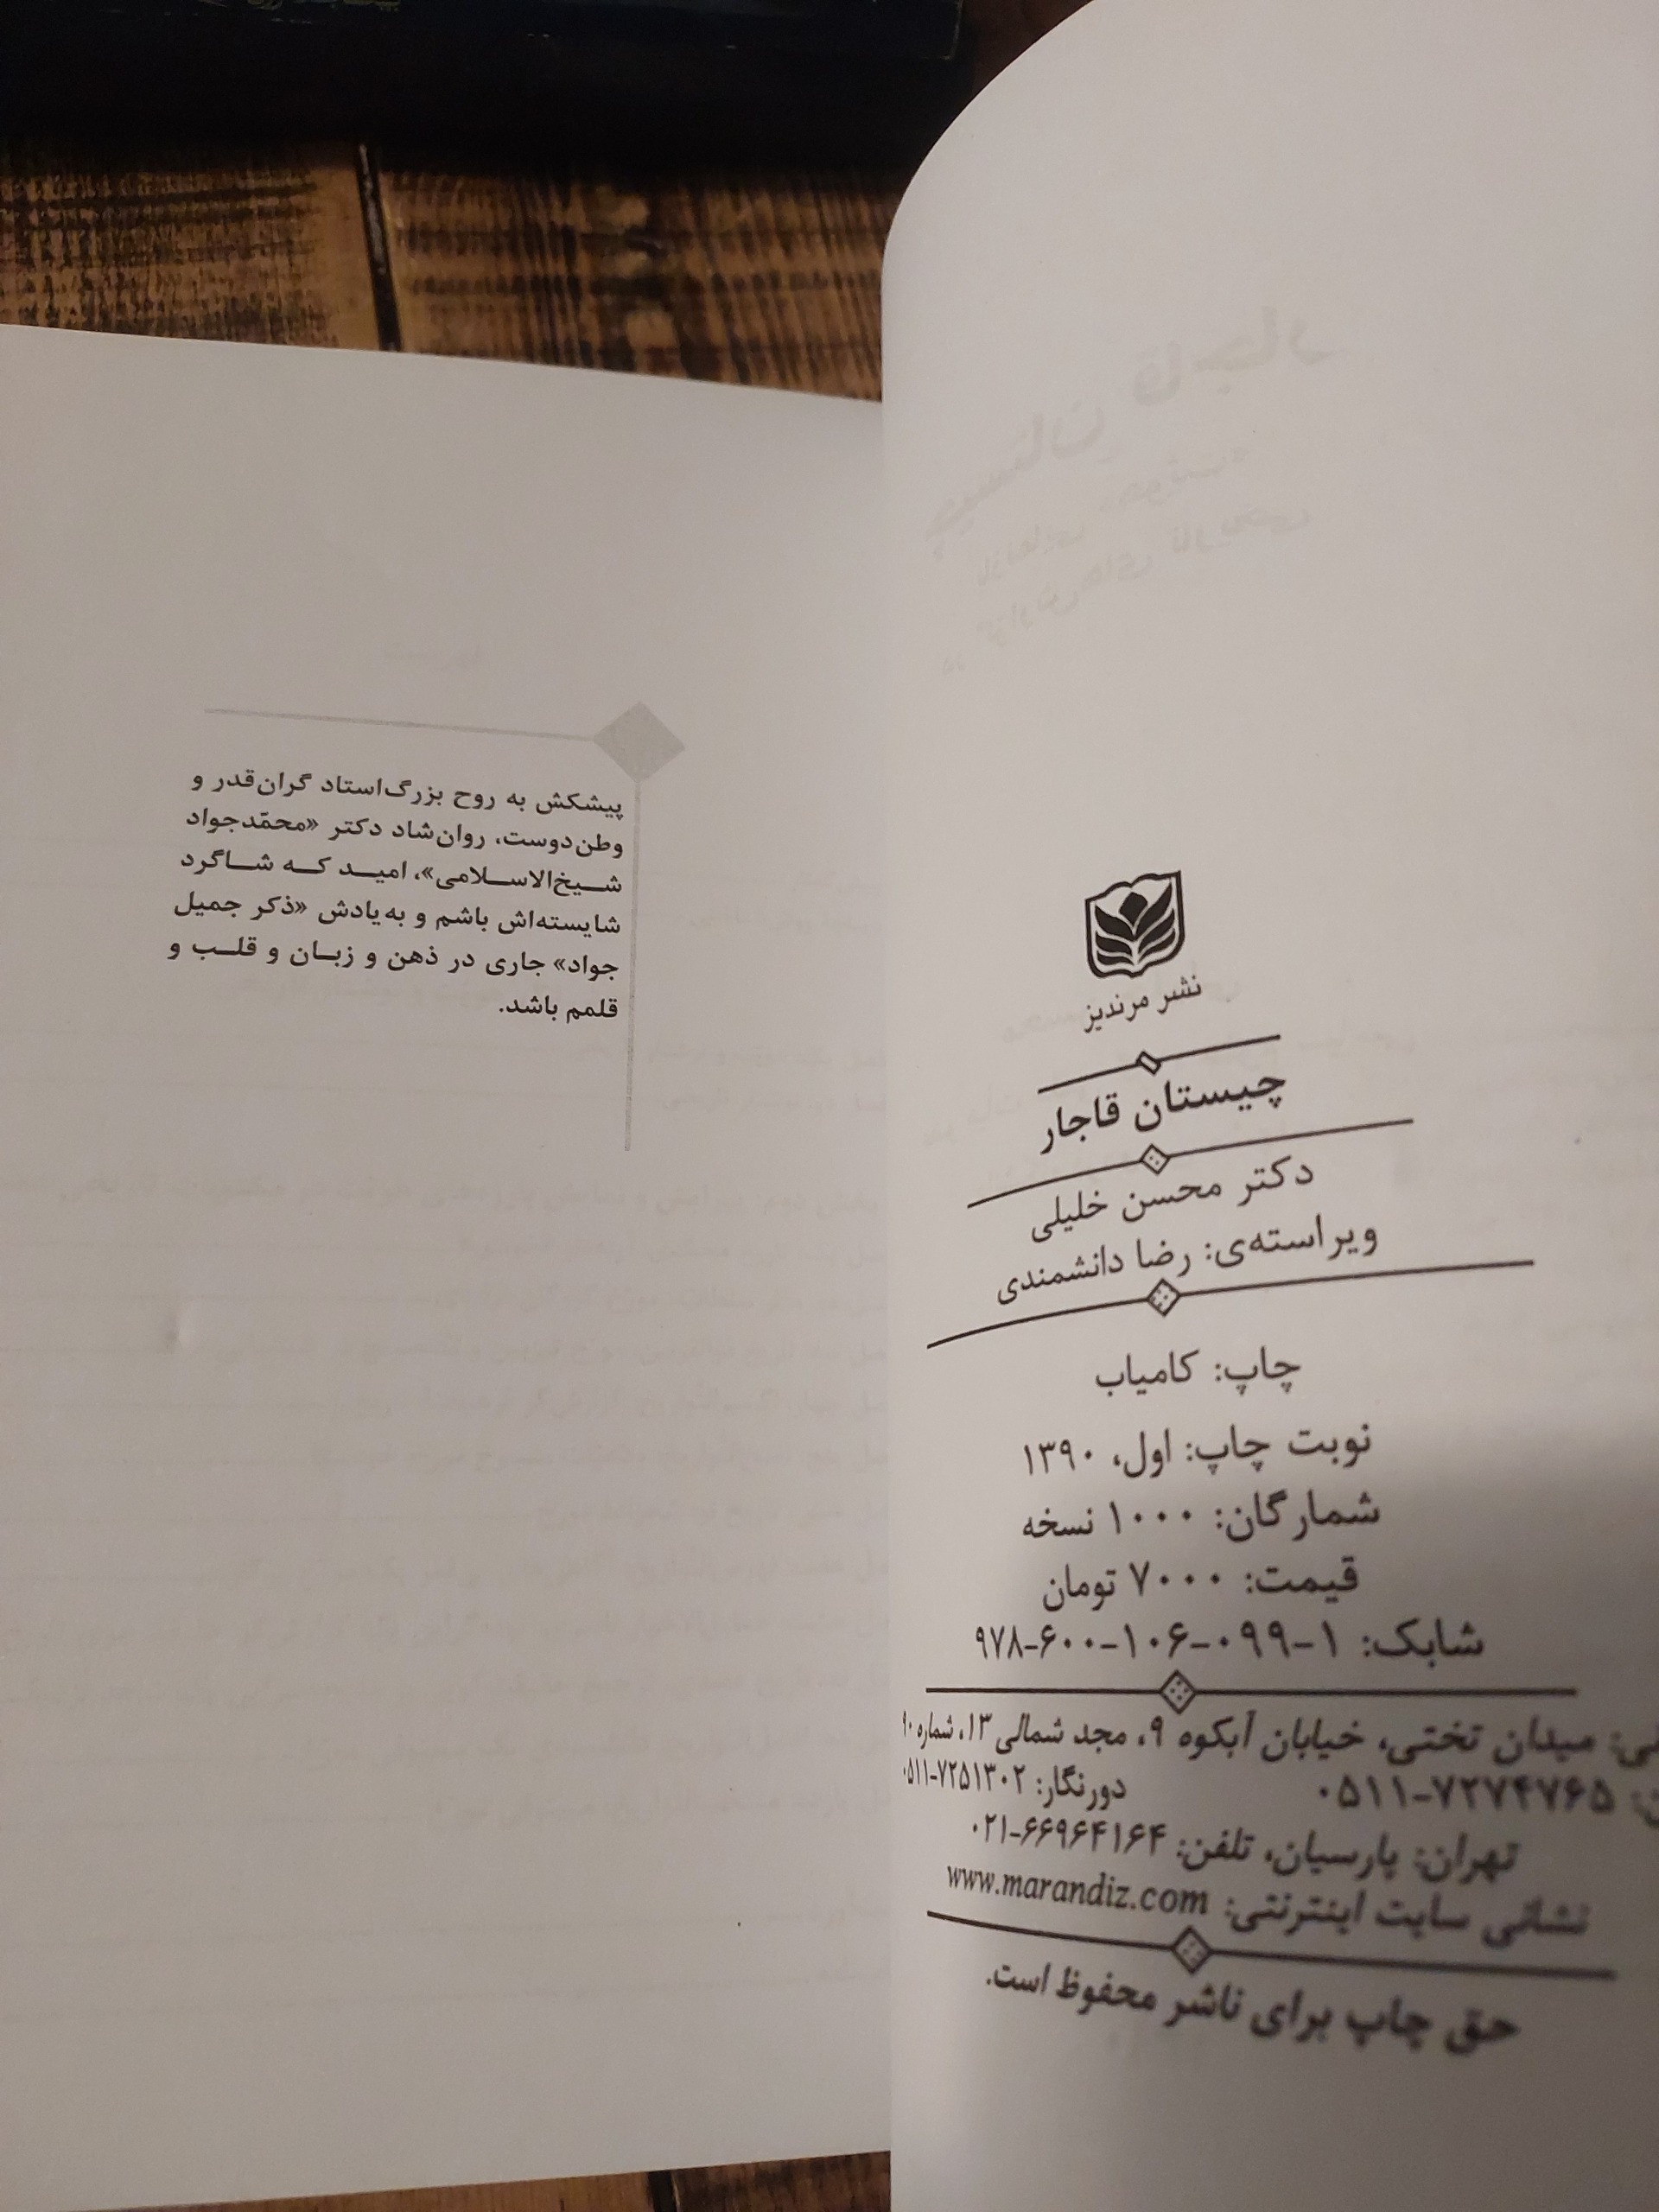 نشر مرندیز
چیستان قاجار
دکتر محسن خلیلی
ویراسته‌ی: رضا دانشمندی
چاپ: کامیاب
نوبت چاپ: اول، ۱۳۹۰
شمارگان: ۱۰۰۰ نسخه
قیمت: ۷۰۰۰ تومان
شابک: ۱-۰۹۹-۱۰۶-۶۰۰-۹۷۸
میدان تختی، خیابان آبکوه ۹، مجد شمالی ۱۳، شماره
۰۵۱۱-۷۲۷۴۷۶۵ دورنگار: ۰۵۱۱-۷۲۵۱۳۰۲
تهران: پارسیان، تلفن: ۰۲۱-۶۶۹۶۴۱۶۴
نشانی سایت اینترنتی: www.marandiz.com
حق چاپ برای ناشر محفوظ است.
پیشکش به روح بزرگ‌استاد گران‌قدر و
وطن‌دوست، روان‌شاد دکتر «محمّدجواد
شیخ‌الاسلامی»، امید که شاگرد
شایسته‌اش باشم و به‌یادش «ذکر جمیل
جواد» جاری در ذهن و زبان و قلب و
قلمم باشد.